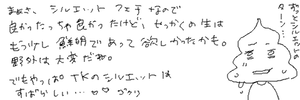 まぁさ、シルエット フェチ なので
良かったっちゃ良かったけど、せっかくの生は
もう少し 鮮明で あって 欲しかったかも。
野外は 大変 だね。
でもやっぱ。TKのシルエットは
すばらしい…♡♡ ゴクリ
ずっとシルエットの
ターン…